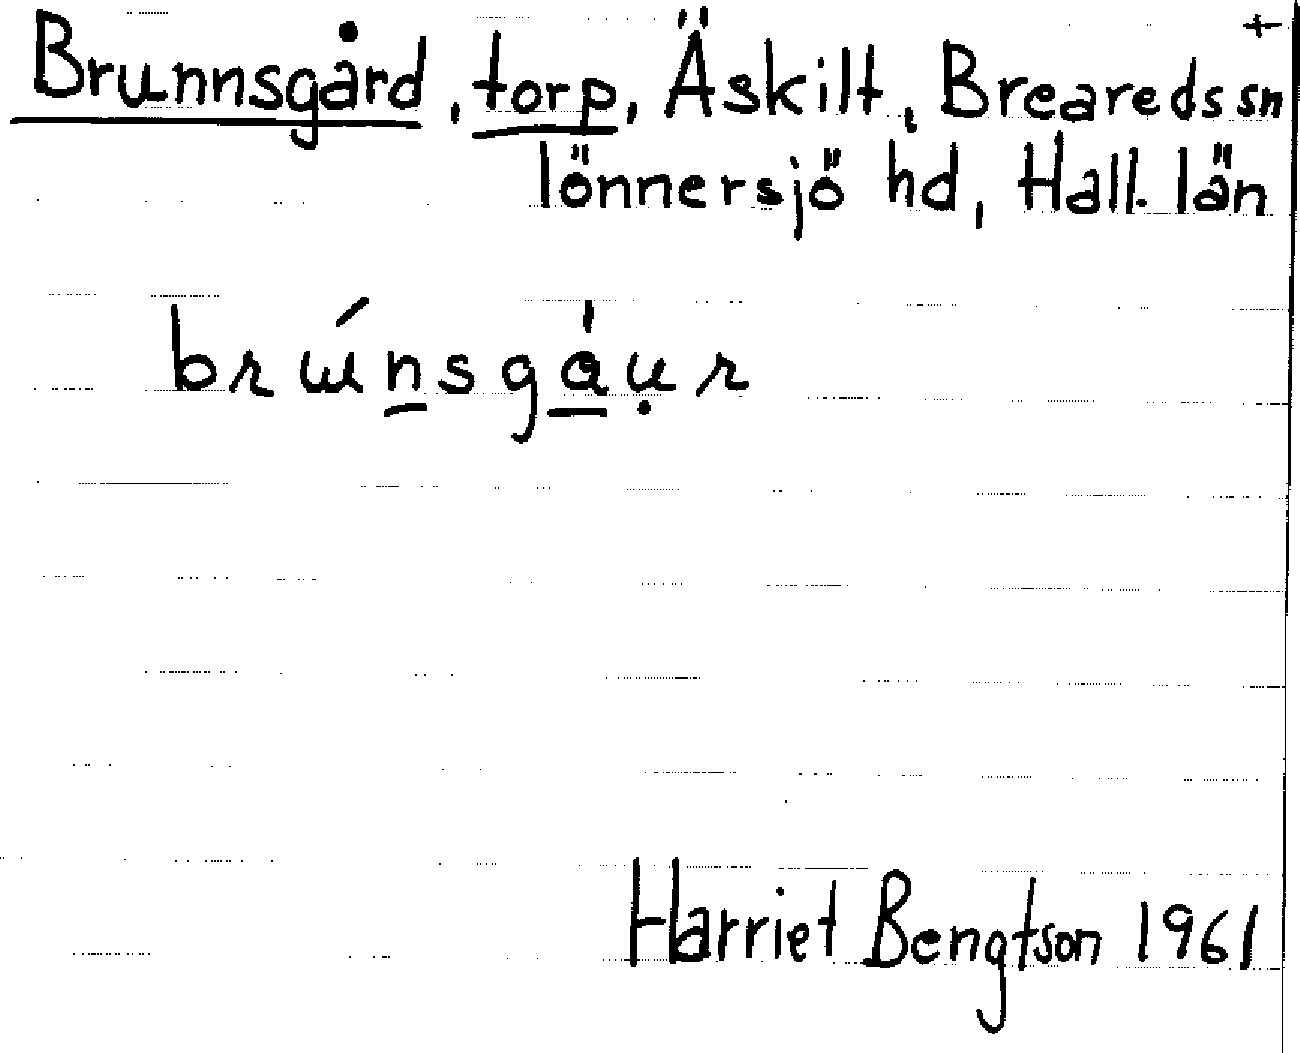 Brunnsgård, torp, Äskilt, Breareds sn +
lönnersjö hd, Hall. län
brɯ́n̲sgá̲ụr
Harriet Bengtson 1961